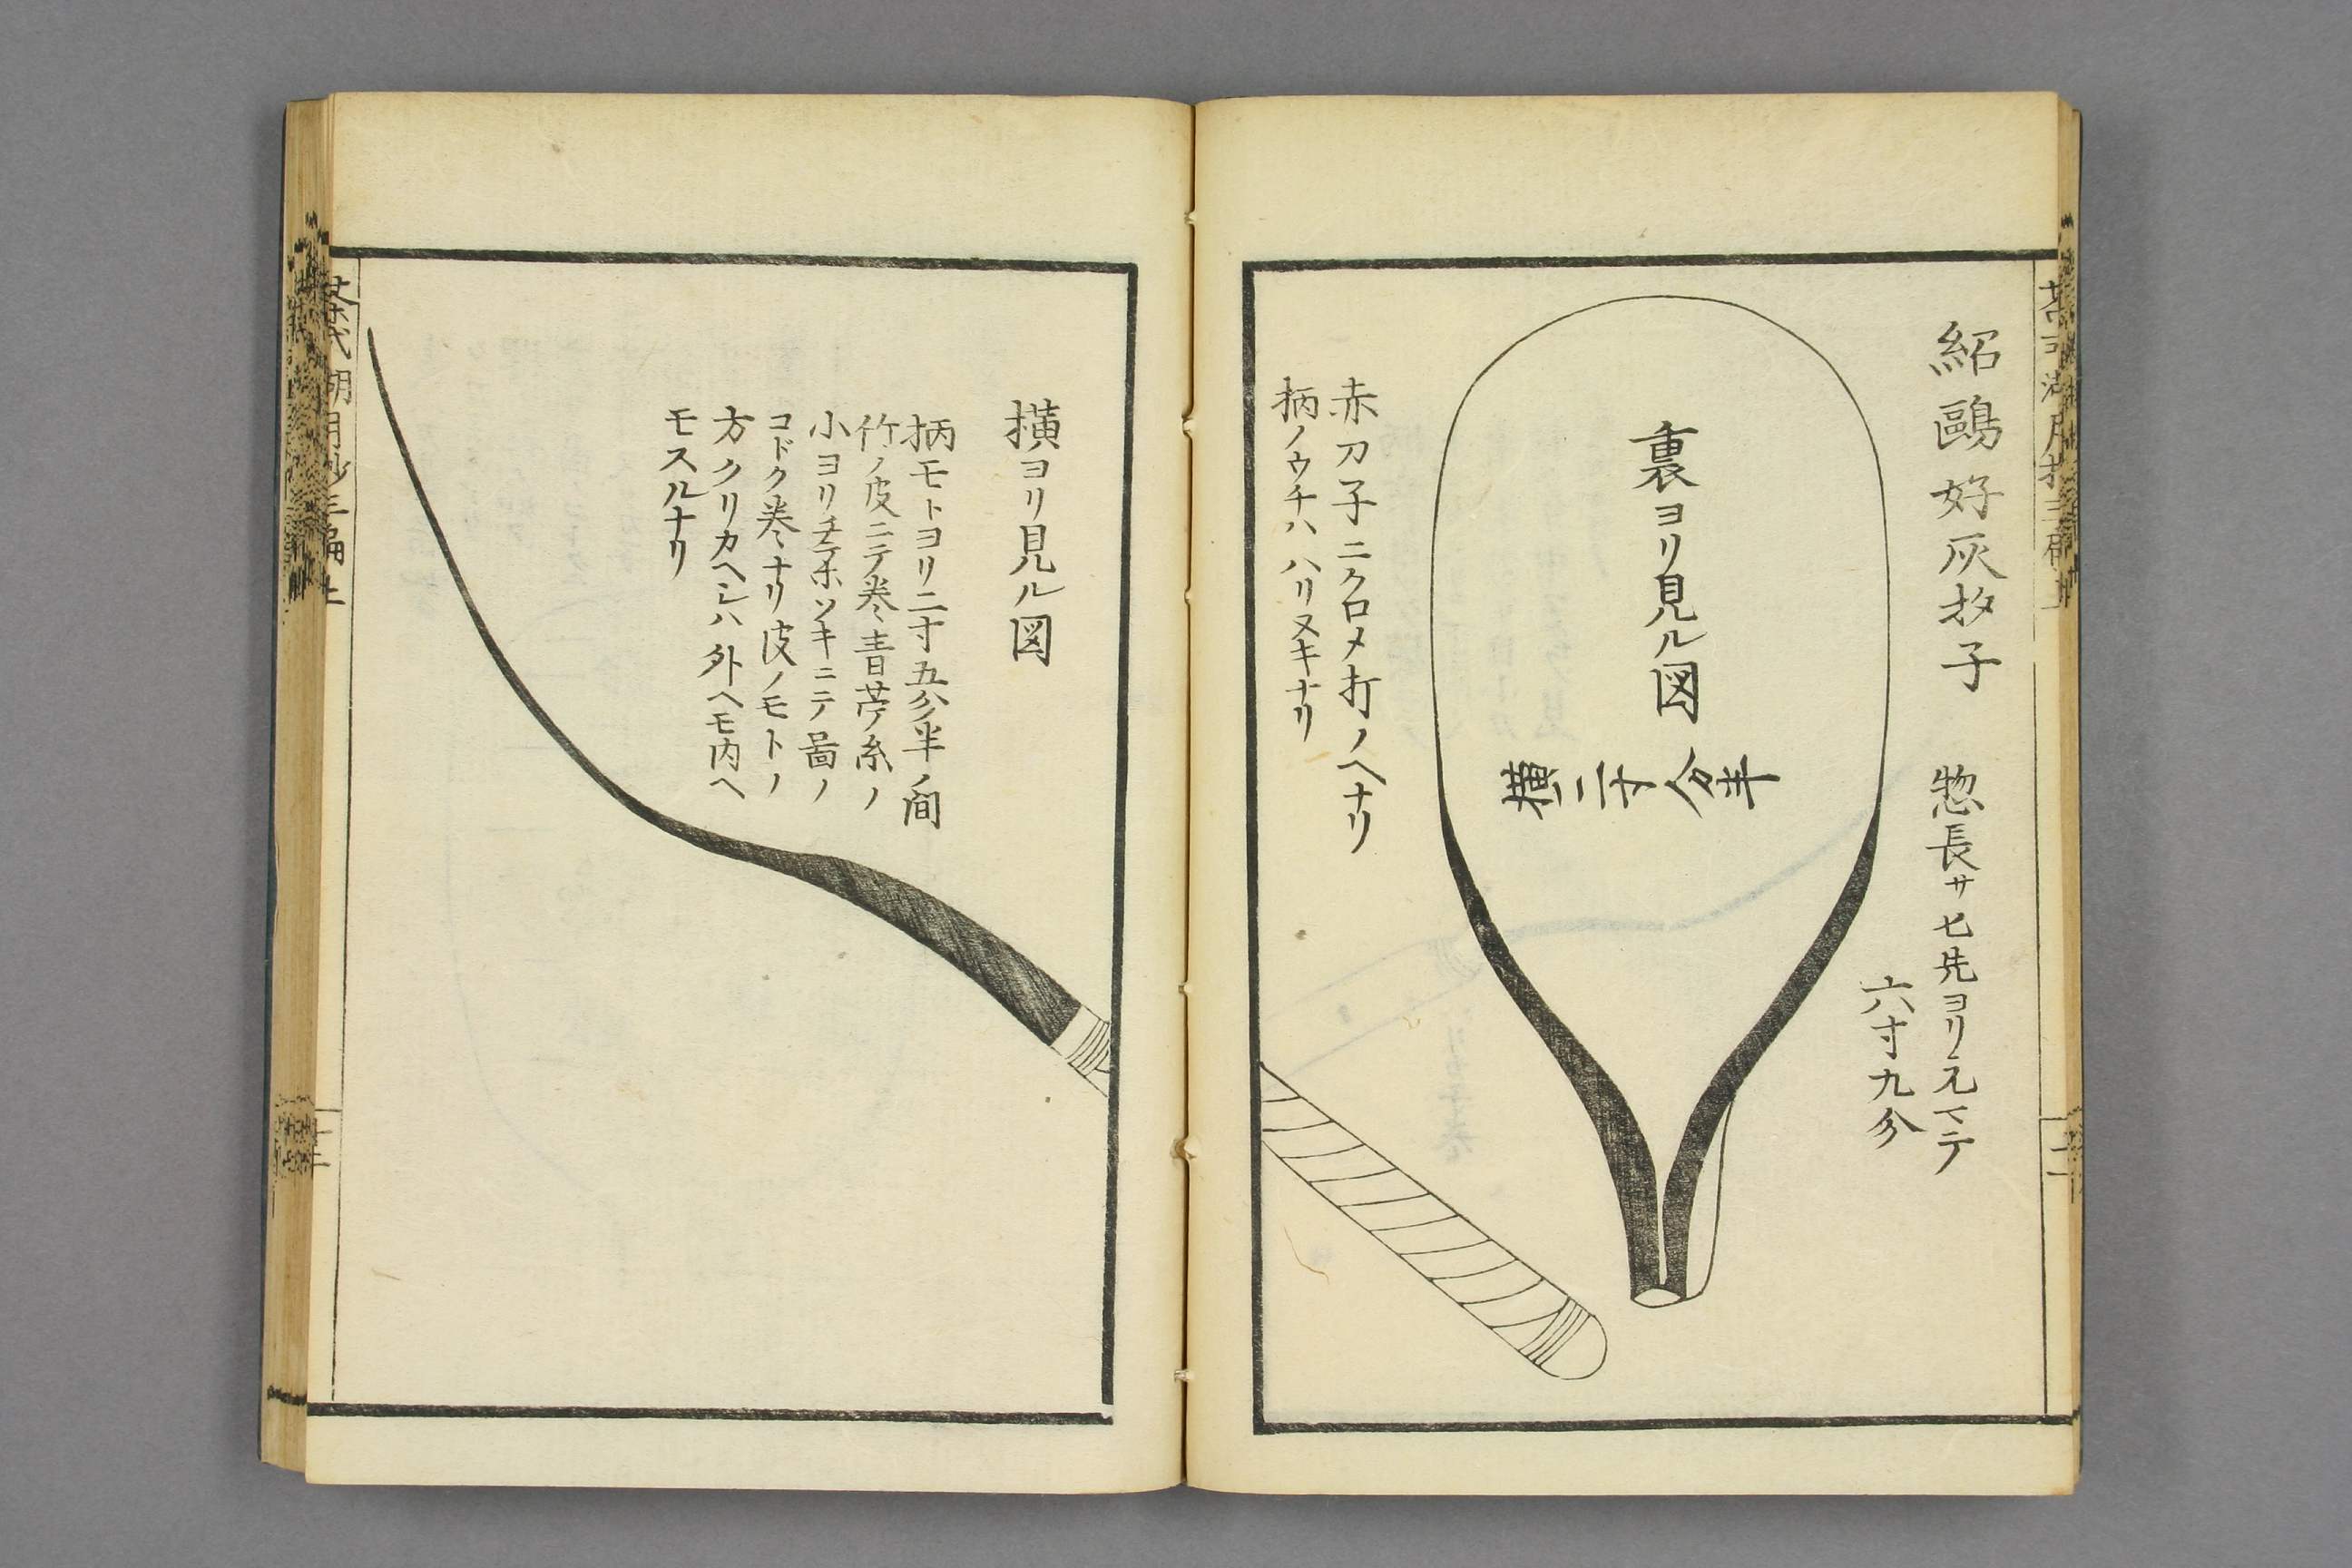 紹鷗好灰抄子
惣長サヒ先ヨリ元マテ
六寸九分
裏ヨリ見ル図
横二寸八分半
赤刀子ニクロメ打ノヘナリ
柄ノウチハハリヌキナリ
横ヨリ見ル図
柄モトヨリ二寸五分半ノ間
竹ノ皮ニテ巻青苧糸ノ
小ヨリホソキニテ啚ノ
コドク巻ナリ皮ノモトノ
方クリカヘシハ外ヘモ内ヘ
モスルナリ
茶式湖月抄三編上